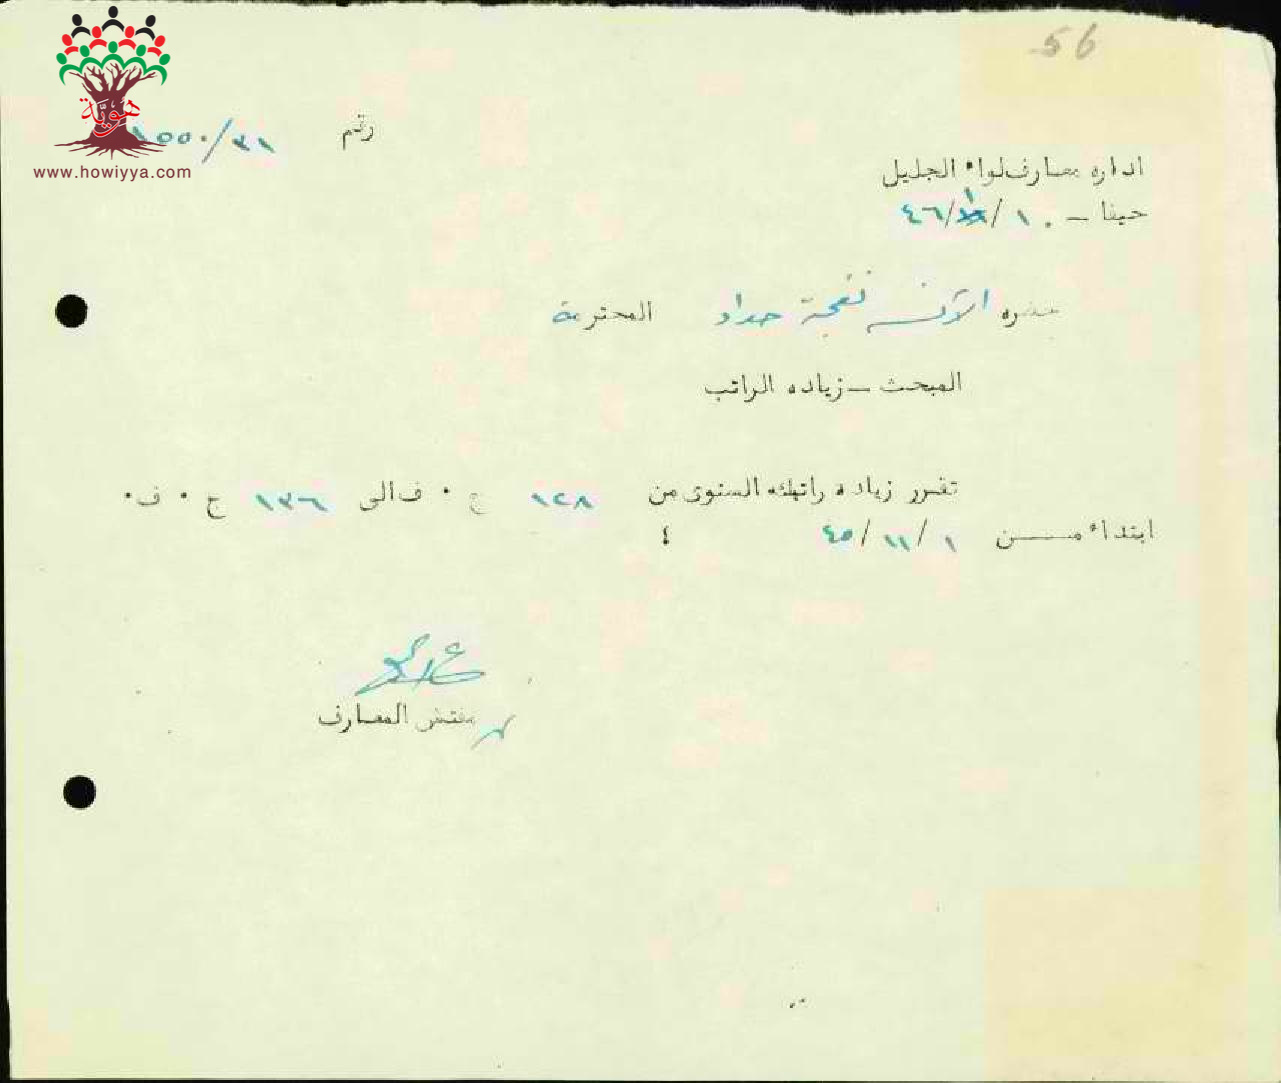 56
هويّة
www.howiyya.com
رقم ٣١/١٥٥٠
اداره معارف لواء الجليل
حيفا – ١٠/١/٤٦
حضره الآنسه نعجة حداد المحترمة
المبحث – زياده الراتب
تقرر زياده راتبك السنوى من ١٢٨ ج ٠ ف الى ١٣٦ ج ٠ ف٠
ابتداء من ١/١١/٤٥ ؛
مفتش المعارف